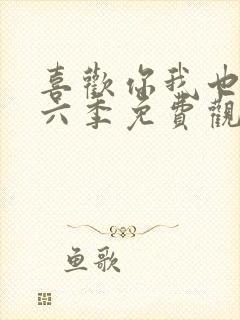 喜歡你我也
六季免費觀
鱼歌